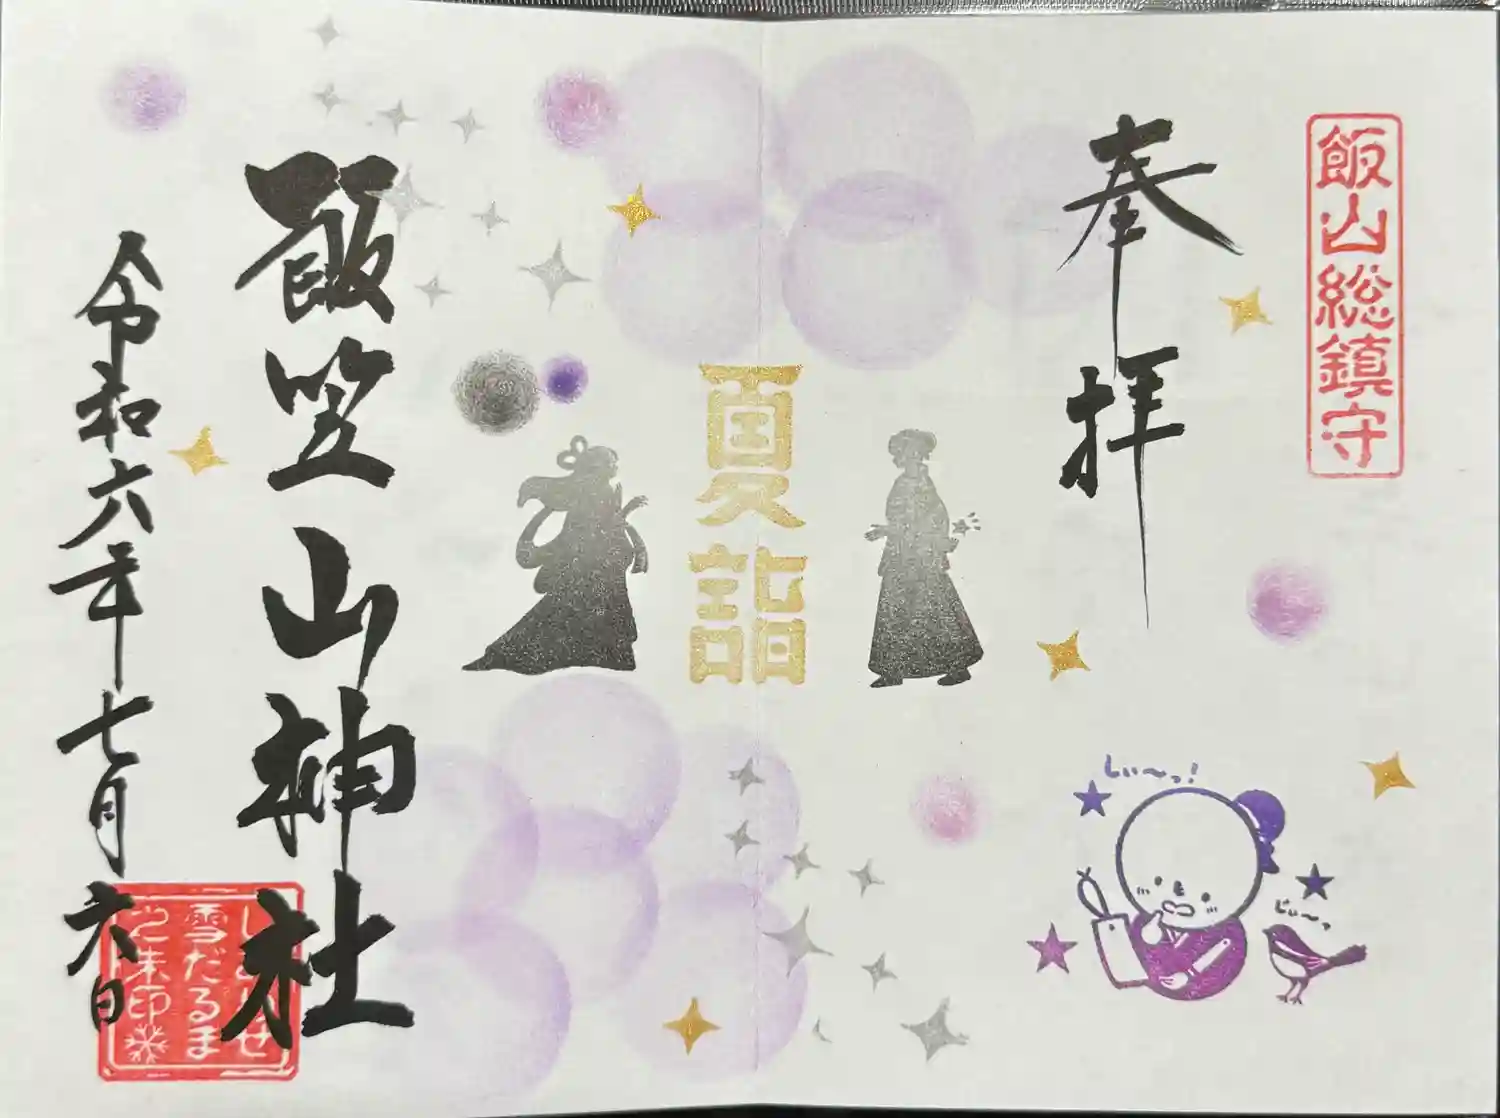 飯山総鎮守
奉拝
夏詣
しぃ〜っ!
じぃ〜っ
飯笠山神社
令和六年七月六日
しあわせ
雪だるま
之朱印